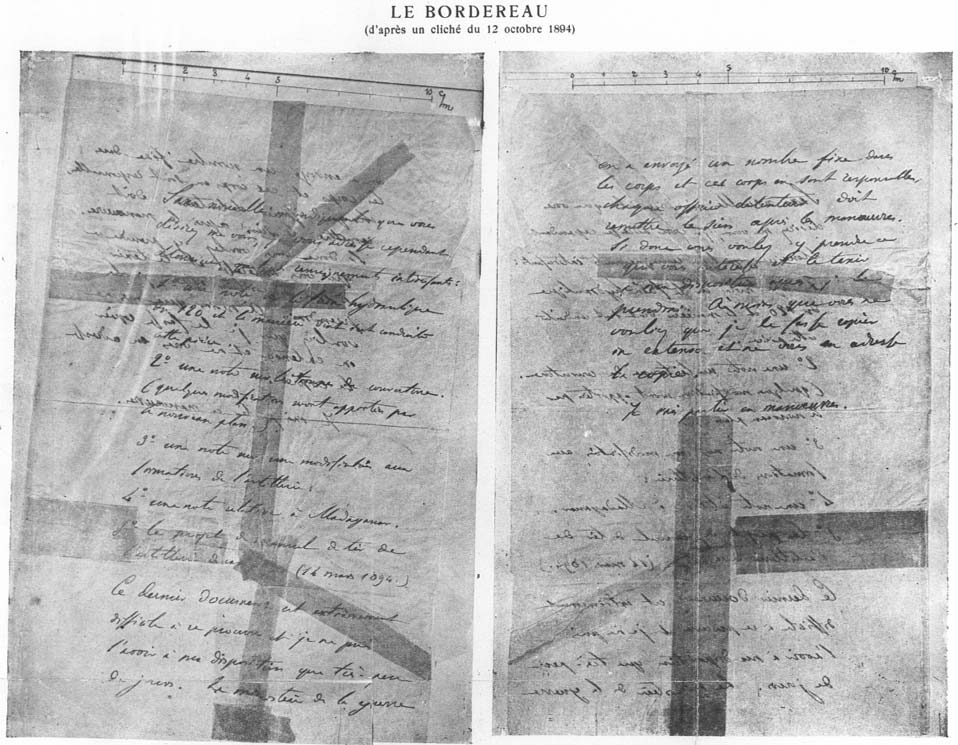 LE BORDEREAU
(d'après un cliché du 12 octobre 1894)
0 1 2 3 4 5 10 c/m
Sans nouvelles m'indiquant que vous
désirez me voir, je vous adresse cependant
Monsieur quelques renseignements intéressants :
1° une note sur le frein hydraulique
du 120 et la manière dont s'est conduite
cette pièce.
2° une note sur les troupes de couverture.
(quelques modifications seront apportées par
le nouveau plan.)
3° une note sur une modification aux
formations de l'artillerie :
4° une note relative à Madagascar.
5° le projet de manuel de tir de
l'artillerie de (14 mars 1894.)
Ce dernier document est extrêmement
difficile à se procurer et je ne puis
l'avoir à ma disposition que très peu
de jours. Le ministère de la guerre
0 1 2 3 4 5 10 c/m
en a envoyé un nombre fixe dans
les corps et ces corps en sont responsables,
chaque officier détenteur doit
remettre le sien après les manœuvres.
Si donc vous voulez y prendre ce
qui vous intéresse et le tenir
à ma disposition après, je le
prendrai. À moins que vous ne
vouliez que je le fasse copier
in extenso et ne vous en adresse
la copie.
Je vais partir en manœuvres.